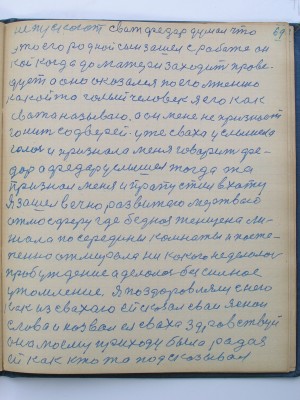 69
не пускают сват федар думал что
это его родной сын зашел с работе он
кой когда до матери заходит прове-
дует а оно оказался по его мнению
какой то голый человек я его как
свата называю, а он мене не признаёт
гонит с дверей - уже сваха услышела
голос и признала меня говарит фе-
дар а федар услышел тогда та
признал меня и пропустил в хату
Я зашел вечно развитого мертваго
атмосферу где бедноя женщена ле-
жала по середины комнаты и посте-
пенно отмирала ни какого недвного
пробуждение а делолос бессилное
утомление. Я поздоровлям снего
как из свахаю ей сказал сваи
слова и назвал ея сваха здравствуй
она моему приходу была радая
ей как кто то подсказывал